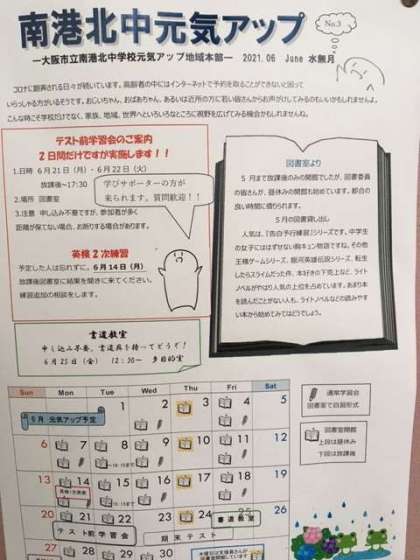 南港北中元気アップ
No.3
―大阪市立南港北中学校元気アップ地域本部― 2021.06 June 水無月
コロナに翻弄される日々が続いています。高齢者の中にはインターネットで予約を取ることができないと困って
いらっしゃる方がいるそうです。おじいちゃん、おばあちゃん、あるいは近所の方に若い皆さんからお声がけしてみるのもいいかもしれませんよ。
こんな時こそ学校だけでなく、家族、地域、世界へといろいろなところに視野を広げてみる機会かもしれませんね。
テスト前学習会のご案内
2日間だけですが実施します!!
1.日時 6月21日(月)・6月22日(火)
放課後~17:30
2.場所 図書室
3.注意 申し込み不要ですが、参加者が多く
距離が保てない場合、お断りする場合があります。
学びサポーターの方が
来られます。質問歓迎!!
英検2次練習
予定した人は忘れずに。6月14日(月)
放課後図書室に結果を聞きに来てください。
練習追加の相談をします。
書道教室
申し込み不要、書道具を持ってどうぞ!
6月25日(金) 12:30~ 多目的室
図書室より
5月まで放課後のみの開館でしたが、図書委員
の皆さんが、昼休みの開館も始めています。都合の
良い時間に借りられます。
5月の図書貸し出し
人気は、『告白予行練習』シリーズです。中学生
の女子にははずせない胸キュン物語ですね。その他
王様ゲームシリーズ、銀河英雄伝説シリーズ、転生
したらスライムだった件、本好きの下剋上など、ライト
ノベルがやはり人気の上位を占めています。あまり本
を読んだことがない人も、ライトノベルなどの読みやす
い本から始めてみてはどうでしょう。
Sun Mon Tue Wed Thu Fri Sat
6月 元気アップ予定
1 2 3 4 5
6 7 8 9 10 11 12
13 14 15 16 17 18 19
20 21 22 23 24 25 26
書道教室
テスト前学習会
期末テスト
27 28 29 30
通常学習会
図書室で自習形式
図書室開館
上段は昼休み
下段は放課後